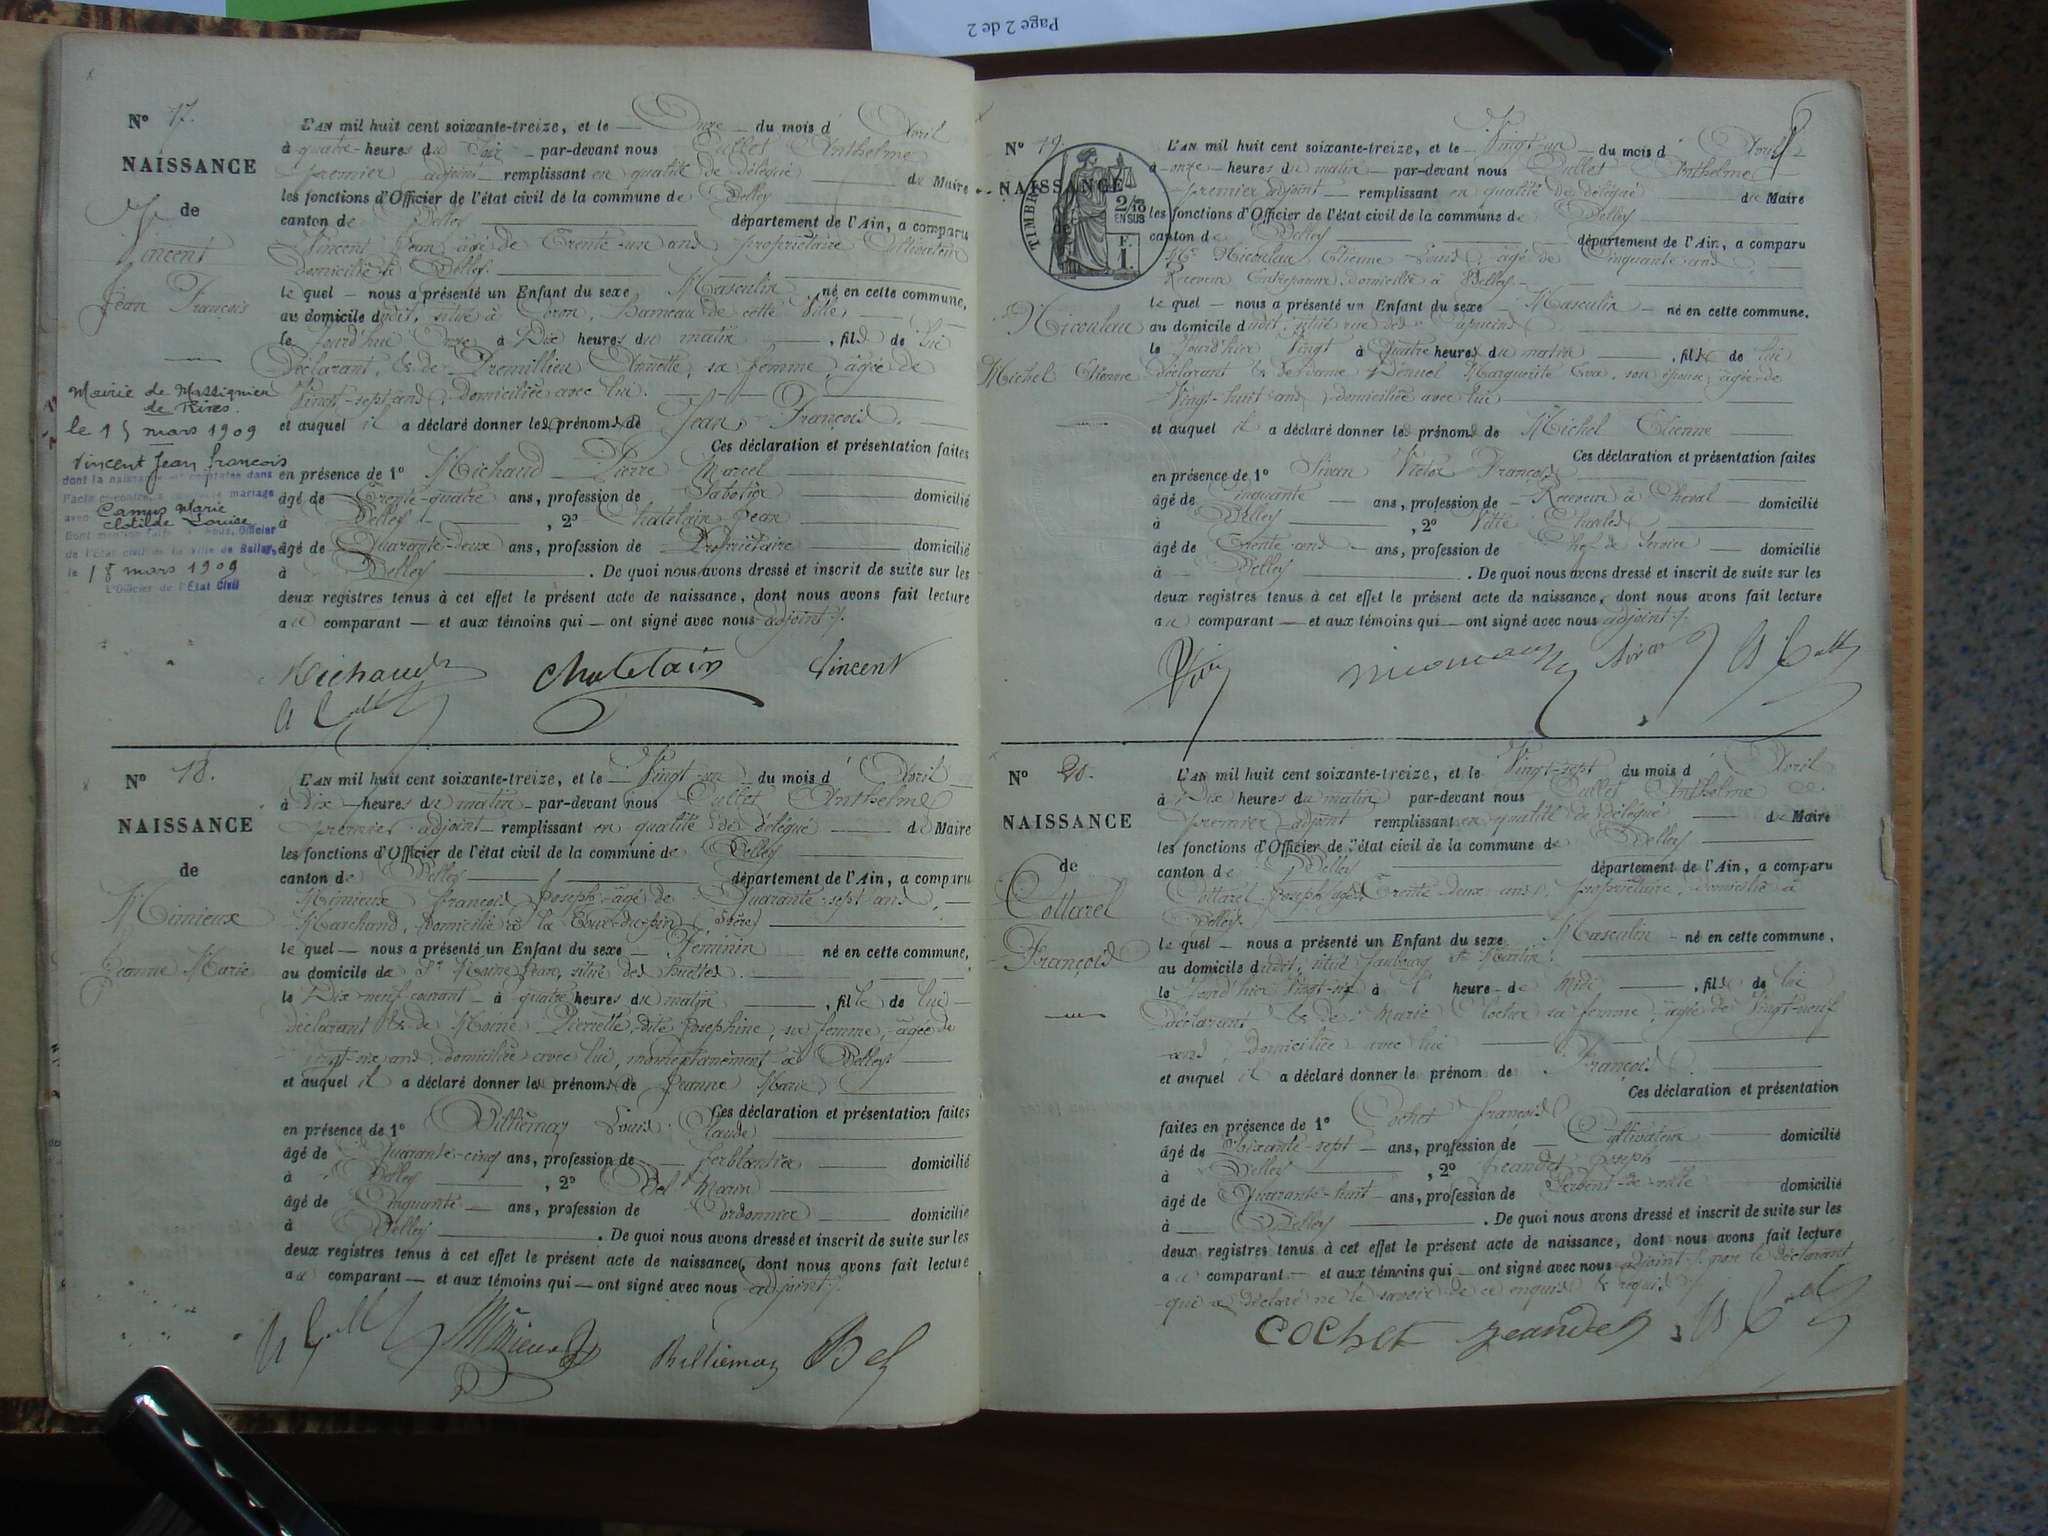 Page 2 de 2
Nº 17.
NAISSANCE
de
Vincent
Jean François
Mairie de Massignieu
de Rives.
le 15 mars 1909
Vincent Jean françois
dont la naissance est constatée dans
l'acte ci-contre a contracté mariage
avec Camus Marie
Clotilde Louise
Dont mention faite par nous, Officier
de l'Etat civil de la Ville de Belley,
le 18 mars 1909
L'Officier de l'État Civil
L'AN mil huit cent soixante-treize, et le Onze du mois d' Avril
à quatre heures du Soir par-devant nous Cullet Anthelme
premier adjoint remplissant en qualité de délégué du Maire
les fonctions d'Officier de l'état civil de la commune de Belley
canton de Belley département de l'Ain, a comparu
Vincent Jean âgé de Trente-un ans, propriétaire Cultivateur
domicilié à Belley.
le quel nous a présenté un Enfant du sexe Masculin né en cette commune,
au domicile dudit, situé à Coron, hameau de cette Ville,
le Jourd'hui Onze à Dix heures du matin, fils de lui
Déclarant, & de Premillieu Annette, sa femme, âgée de
Vingt-sept ans, domiciliée avec lui.
et auquel il a déclaré donner les prénoms de Jean François.
Ces déclaration et présentation faites
en présence de 1º Michaud Pierre Marcel
âgé de Trente-quatre ans, profession de Sabotier domicilié
à Belley, 2º Chatelain Jean
âgé de Quarante-deux ans, profession de Propriétaire domicilié
à Belley. De quoi nous avons dressé et inscrit de suite sur les
deux registres tenus à cet effet le présent acte de naissance, dont nous avons fait lecture
au comparant et aux témoins qui ont signé avec nous adjoint.
Michaud Chatelain Vincent
A Cullet
Nº 18.
NAISSANCE
de
Mimieux
Jeanne Marie
L'AN mil huit cent soixante-treize, et le Vingt-un du mois d' Avril
à Dix heures du matin par-devant nous Cullet Anthelme
premier adjoint remplissant en qualité de délégué du Maire
les fonctions d'Officier de l'état civil de la commune de Belley
canton de Belley département de l'Ain, a comparu
Mimieux François Joseph âgé de Quarante-sept ans,
Marchand, domicilié à la Tour-du-pin (Isère)
le quel nous a présenté un Enfant du sexe Féminin né en cette commune,
au domicile de Sr Moine Jean, situé des
le Dix-neuf courant à quatre heures du matin, fille de lui
déclarant & de Moine Pierrette, dite Joséphine, sa femme, âgée de
vingt-six ans, domiciliée avec lui, momentanément à Belley
et auquel il a déclaré donner les prénoms de Jeanne Marie
Ces déclaration et présentation faites
en présence de 1º Billiemaz Louis Claude
âgé de Quarante-cinq ans, profession de ferblantier domicilié
à Belley, 2º Bel Marin
âgé de Cinquante ans, profession de Cordonnier domicilié
à Belley. De quoi nous avons dressé et inscrit de suite sur les
deux registres tenus à cet effet le présent acte de naissance, dont nous avons fait lecture
au comparant et aux témoins qui ont signé avec nous adjoint.
A Cullet Mimieux Billiemaz Bel
Nº 19.
NAISSANCE
de
TIMBRE
2/10
EN SUS
F.
1.
Nicoulau
Michel Etienne
L'AN mil huit cent soixante-treize, et le Vingt-un du mois d' Avril
à onze heures du matin par-devant nous Cullet Anthelme
premier adjoint remplissant en qualité de délégué du Maire
les fonctions d'Officier de l'état civil de la commune de Belley
canton de Belley département de l'Ain, a comparu
Mr Nicoulau Etienne Louis, âgé de Cinquante ans,
Receveur Entreposeur, domicilié à Belley
le quel nous a présenté un Enfant du sexe Masculin né en cette commune,
au domicile dudit, situé rue des Capucins
le Jourd'hier Vingt à Quatre heures du matin, fils de lui
déclarant & de dame Marguerite Eva, son épouse, âgée de
Vingt-huit ans, domiciliée avec lui
et auquel il a déclaré donner les prénoms de Michel Etienne
Ces déclaration et présentation faites
en présence de 1º Sivan Victor François
âgé de Cinquante ans, profession de Receveur à Cheval domicilié
à Belley, 2º Charles
âgé de Trente ans ans, profession de Chef de Service domicilié
à Belley. De quoi nous avons dressé et inscrit de suite sur les
deux registres tenus à cet effet le présent acte de naissance, dont nous avons fait lecture
au comparant et aux témoins qui ont signé avec nous adjoint.
Nicoulau Sivan A Cullet
Nº 20.
NAISSANCE
de
Cottarel
François
L'AN mil huit cent soixante-treize, et le Vingt-sept du mois d' Avril
à Dix heures du matin par-devant nous Cullet Anthelme
premier adjoint remplissant en qualité de délégué du Maire
les fonctions d'Officier de l'état civil de la commune de Belley
canton de Belley département de l'Ain, a comparu
Cottarel Joseph âgé de Trente-deux ans, propriétaire, domicilié à
Belley.
le quel nous a présenté un Enfant du sexe Masculin né en cette commune,
au domicile dudit, situé faubourg St Martin.
le Jourd'hier Vingt-six à 1 heure de Midi, fils de lui
déclarant & de Marie Cochet sa femme, âgée de Vingt-neuf
ans, domiciliée avec lui
et auquel il a déclaré donner le prénom de François
Ces déclaration et présentation
faites en présence de 1º Cochet François
âgé de Soixante-sept ans, profession de Cultivateur domicilié
à Belley, 2º Jeandet Joseph
âgé de Quarante-huit ans, profession de Sergent-de-ville domicilié
à Belley. De quoi nous avons dressé et inscrit de suite sur les
deux registres tenus à cet effet le présent acte de naissance, dont nous avons fait lecture
au comparant et aux témoins qui ont signé avec nous adjoint, non le déclarant
qui a déclaré ne le savoir de ce enquis & requis.
Cochet Jeandet A Cullet